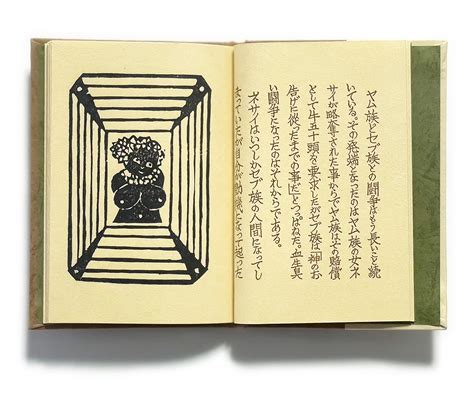 ヤム族とセブ族との闘争はもう長いこと続
いている。その発端となったのはヤム族の女ネ
サイが略奪された事からでヤム族はその賠償
として牛五十頭を要求したがセブ族は「神のお
告げに従ったまでの事だ」とつっぱねた。血生臭
い闘争になったのはそれからである。
ネサイはいつしかセブ族の人間になってし
まっていたが自分が動機になって起った